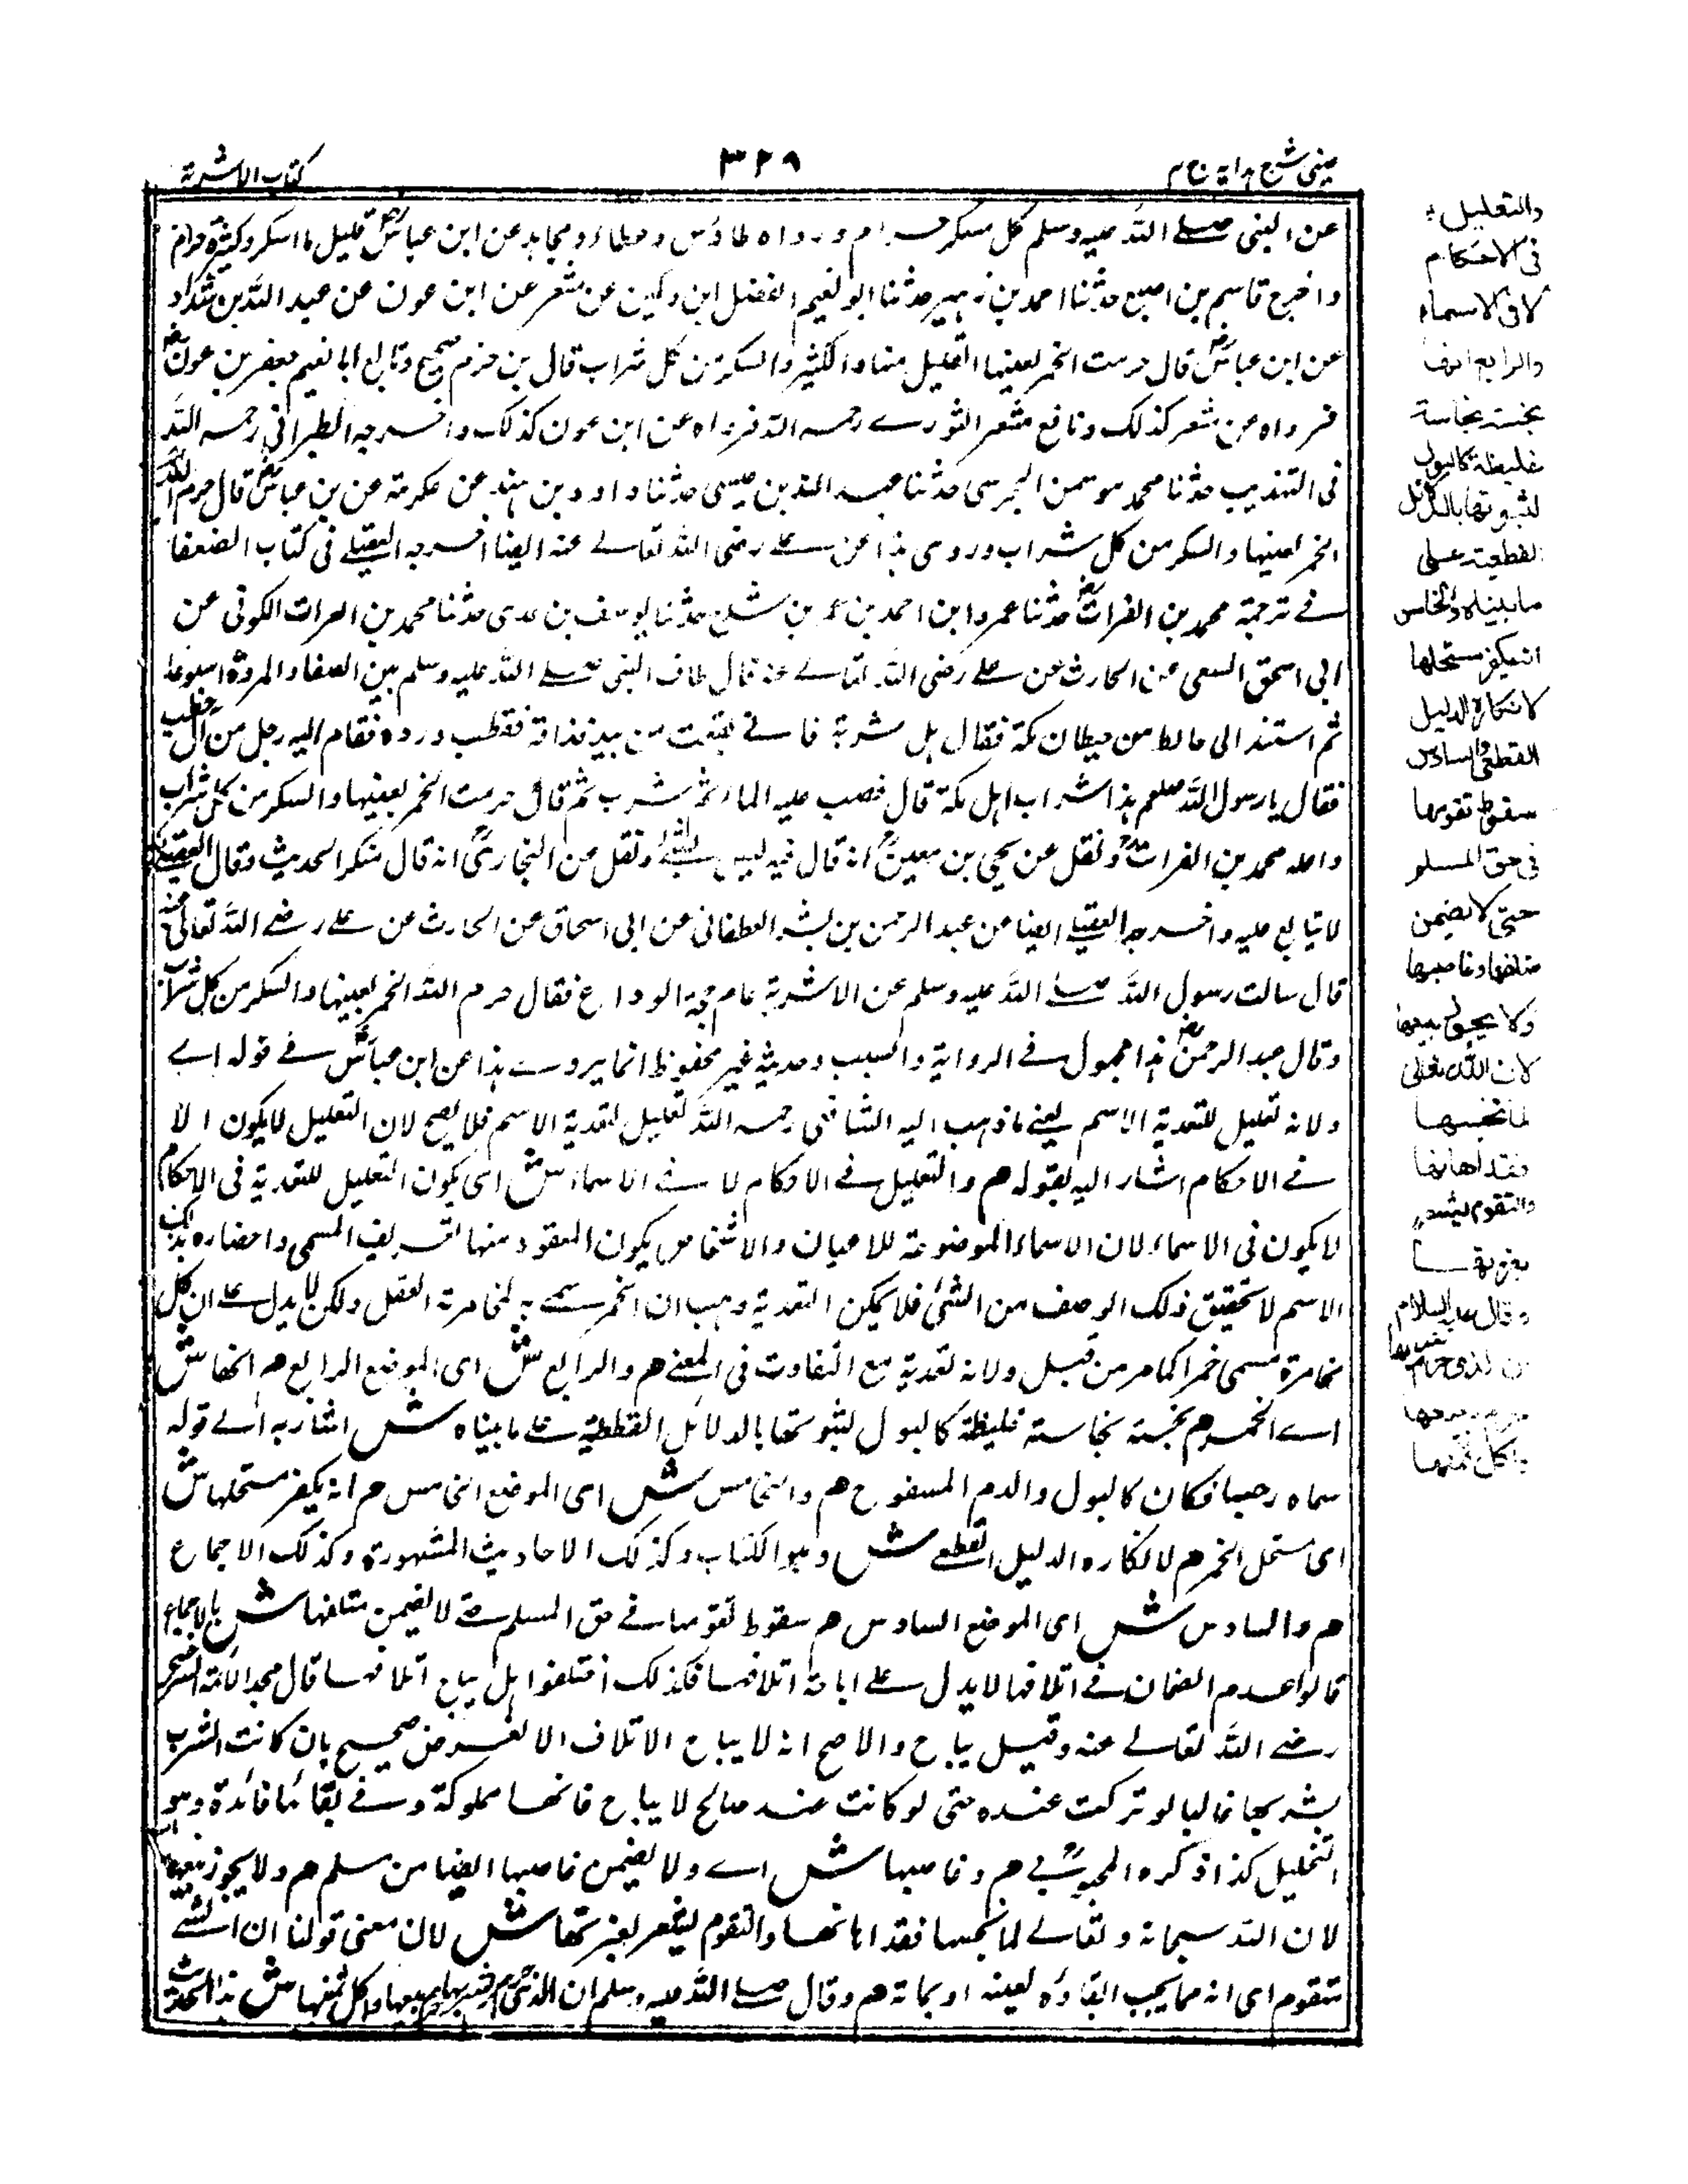 عینی شرح ہدایہ ج ۴
۳۲۹
کتاب الاشربة
عن النبی صلے اللہ علیہ وسلم کل مسکر حرام ورواہ طاؤس وعطاء ومجاہد عن ابن عباس قلیل ما اسکر وکثیرہ حرام
واخرج قاسم بن اصبغ حدثنا احمد بن زہیر حدثنا ابو نعیم الفضل ابن دکین عن مشعر عن ابن عون عن عبد اللہ بن شداد
عن ابن عباس قال حرمت الخمر لعینہا القلیل منہا والکثیر والسکر من کل شراب قال بن حزم صحیح وتابع ابا نعیم جعفر بن عون
فرواہ عن مشعر کذلک وتابع مشعر الثوری رحمہ اللہ فرواہ عن ابن عون کذلک واخرجہ الطبرانی رحمہ اللہ
فی التہذیب حدثنا محمد بن موسی الجرسی حدثنا عبد اللہ بن عیسی حدثنا داود بن ہند عن عکرمة عن بن عباس قال حرم اللہ
الخمر لعینہا والسکر من کل شراب وروی ہذا عن علے رضی اللہ تعالے عنہ ایضا اخرجہ العقیلے فی کتاب الضعفا
فے ترجمة محمد بن الفرات حدثنا عمرو ابن احمد بن عمر بن حدثنا یوسف بن عدی حدثنا محمد بن الفرات الکوفی عن
ابی اسحق السعی عن الحارث عن علے رضی اللہ تعالے عنہ قال طاف النبی صلے اللہ علیہ وسلم بین الصفا والمروة اسبوعا
ثم استند الی حائط من حیطان مکة فقال ہل شربة فاتے بقعب من نبیذ فذاقہ فقطب وردہ فقام الیہ رجل من آل حطب
فقال یا رسول اللہ صلعم ہذا شراب اہل مکة قال فصب علیہ الماء ثم شرب ثم قال حرمت الخمر لعینہا والسکر من کل شراب
واعلہ محمد بن الفرات ونقل عن یحیی بن معین انہ قال فیہ لیس بشئ ونقل عن البخاری انہ قال منکر الحدیث وقال العقیلے
لا یتابع علیہ واخرجہ العقیلے ایضا عن عبد الرحمن بن بشر الغطفانی عن ابی اسحاق عن الحارث عن علے رضے اللہ تعالی عنہ
قال سالت رسول اللہ صلے اللہ علیہ وسلم عن الاشربة عام حجة الوداع فقال حرم اللہ الخمر لعینہا والسکر من کل شراب
وقال عبد الرحمن ہذا مجہول فے الروایة والسبب وحدیثہ غیر محفوظ انما یروے ہذا عن ابن عباس فے قولہ اے
ولانہ تعلیل لتعدیة الاسم یعنے ما ذہب الیہ الشافعی رحمہ اللہ تعلیل لتعدیة الاسم فلا یصح لان التعلیل لا یکون الا
فے الاحکام اشار الیہ بقولہ ھم والتعلیل فے الاحکام لا فے الاسماء ش ای یکون التعلیل للتعدیة فی الاحکام
لا یکون فی الاسماء لان الاسماء الموضوعة للاعیان والاشخاص یکون المقصود منہا التعریف المسمی واحضارہ بذلک
الاسم لا تحقیق ذلک الوصف من الشئ فلا یمکن التعدیة وہب ان الخمر سمے بہ لمخامرتہ العقل ولکن لا یدل علے ان کل
مخامرة مسمی خمرا کما مر من قبل ولانہ تعدیة مع التفاوت فی المعنے ھم والرابع ش ای الموضع الرابع ھم انہا ش
اے الخمر ھم نجسة نجاسة غلیظة کالبول لثبوتھا بالدلائل القطعیة علے ما بیناہ ش اشار بہ الے قولہ
سماہ رجسا فکان کالبول والدم المسفوح ھم والخامس ش ای الموضع الخامس ھم انہ یکفر مستحلہا ش
ای مستحل الخمر ھم لانکارہ الدلیل القطعے ش وہو الکتاب وکذلک الاحادیث المشہورة وکذلک الاجماع
ھم والسادس ش ای الموضع السادس ھم سقوط تقومہا فے حق المسلم حتے لا یضمن متلفہا ش بالاجماع
قالوا عدم الضمان فے اتلافہا لا یدل علے اباحة اتلافہا فکذلک اختلفوا ہل یباح اتلافہا قال مجد الائمة
رضے اللہ تعالے عنہ وقیل یباح والاصح انہ لا یباح الاتلاف الا لغرض صحیح بان کانت الشرب
یشربہا غالبا لو ترکت عندہ حتی لو کانت عند صالح لا یباح فانھا مملوکة وفے بقائہا فائدة وہو
التخلیل کذا ذکرہ المحبوبی ھم وغاصبہا ش اے ولا یضمن غاصبہا ایضا من مسلم ھم ولا یجوز بیعہا
لان اللہ سبحانہ وتعالے لما نجسہا فقد اھانھا والتقوم یشعر بعزتھا ش لان معنی قولنا ان الشے
متقوم ای انہ مما یجب ابقاؤہ لعینہ او ھم وقال صلے اللہ علیہ وسلم ان الذی حرم شربہا حرم بیعہا واکل ثمنہا ش ہذا الحدیث
والتعلیل
فی الاحکام
لا فی الاسماء
والرابع انھا
نجسة نجاسة
غلیظة کالبول
لثبوتھا بالدلائل
القطعیة علی
ما بیناہ والخامس
انہ یکفر مستحلھا
لانکارہ الدلیل
القطعی والسادس
سقوط تقومھا
فی حق المسلم
حتی لا یضمن
متلفھا وغاصبھا
ولا یجوز بیعھا
لان اللہ تعالی
لما نجسھا
فقد اھانھا
والتقوم یشعر
بعزتھا
وقال علیہ السلام
ان الذی حرم شربھا
حرم بیعھا
واکل ثمنھا